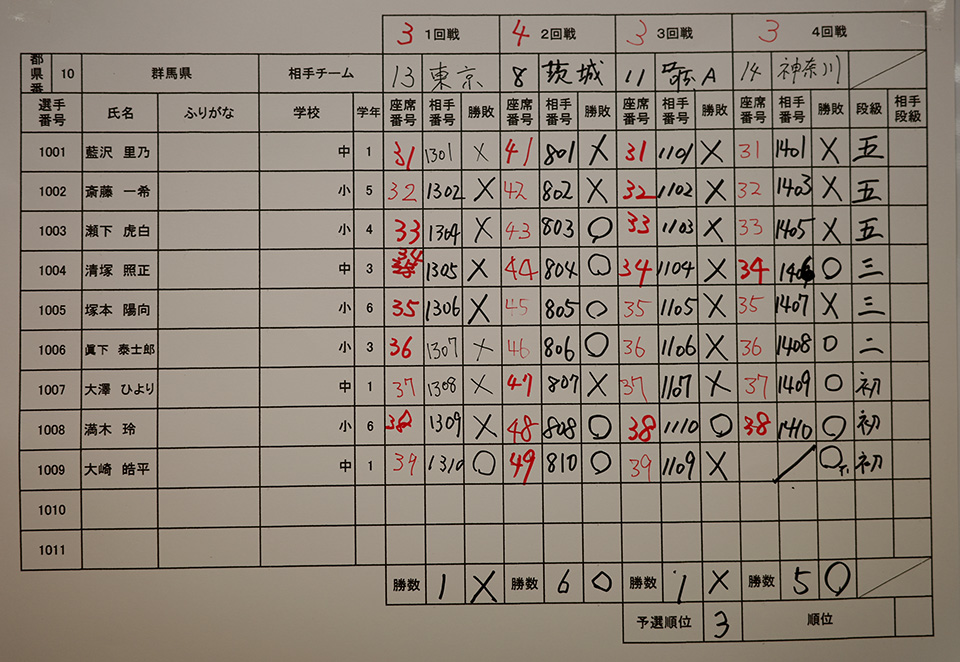 3 1回戦 4 2回戦 3 3回戦 3 4回戦
都県番 10 群馬県 相手チーム 13 東京 8 茨城 11 A 14 神奈川
選手番号 氏名 ふりがな 学校 学年 座席番号 相手番号 勝敗 座席番号 相手番号 勝敗 座席番号 相手番号 勝敗 座席番号 相手番号 勝敗 段級 相手段級
1001 藍沢 里乃 中 1 31 1301 × 41 801 × 31 1101 × 31 1401 × 五
1002 斎藤 一希 小 5 32 1302 × 42 802 × 32 1102 × 32 1403 × 五
1003 瀬下 虎白 小 4 33 1304 × 43 803 ○ 33 1103 × 33 1405 × 五
1004 清塚 照正 中 3 34 1305 × 44 804 ○ 34 1104 × 34 1406 ○ 三
1005 塚本 陽向 小 6 35 1306 × 45 805 ○ 35 1105 × 35 1407 × 三
1006 眞下 泰士郎 小 3 36 1307 × 46 806 ○ 36 1106 × 36 1408 ○ 二
1007 大澤 ひより 中 1 37 1308 × 47 807 × 37 1107 × 37 1409 ○ 初
1008 満木 玲 小 6 38 1309 × 48 808 ○ 38 1110 ○ 38 1410 ○ 初
1009 大崎 皓平 中 1 39 1310 ○ 49 810 ○ 39 1109 × ○ 初
1010
1011
勝数 1 × 勝数 6 ○ 勝数 1 × 勝数 5 ○
予選順位 3 順位